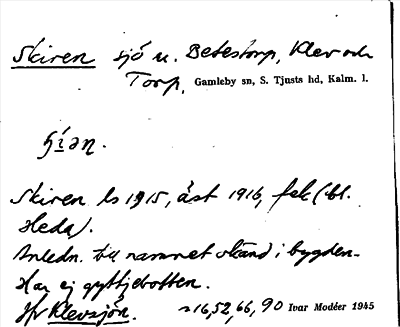 Skiren sjö u. Betestorp, Klev och
Torp, Gamleby sn, S. Tjusts hd, Kalm. l.
Skiren ls 1915, äst 1916, fek (bl.
Heda).
Anledn. till namnet okänd i bygden.
Har ej gyttjebotten.
Jfr Klevsjön. 16, 52, 66, 90 Ivar Modéer 1945